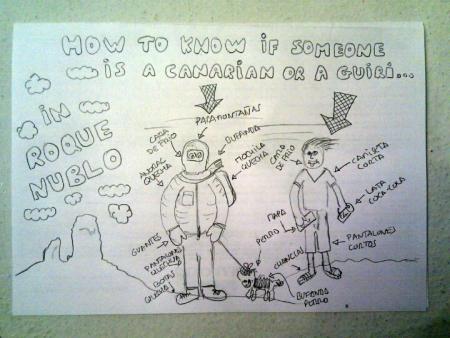 HOW TO KNOW IF SOMEONE
IS A CANARIAN OR A GUIRI...
IN
ROQUE
NUBLO
PASAMONTAÑAS
CARA
DE FRIO
BUFFANDA
ANORAC
QUECHUA
MOCHILA
QUECHUA
CARA
DE FRIO
CAMISETA
CORTA
LATA
COCA-COLA
GUANTES
PANTALONES
QUECHUA
BOTAS
QUECHUA
PERRO
CHANCLAS
PANTALONES
CORTOS
BUFANDA
PERRO